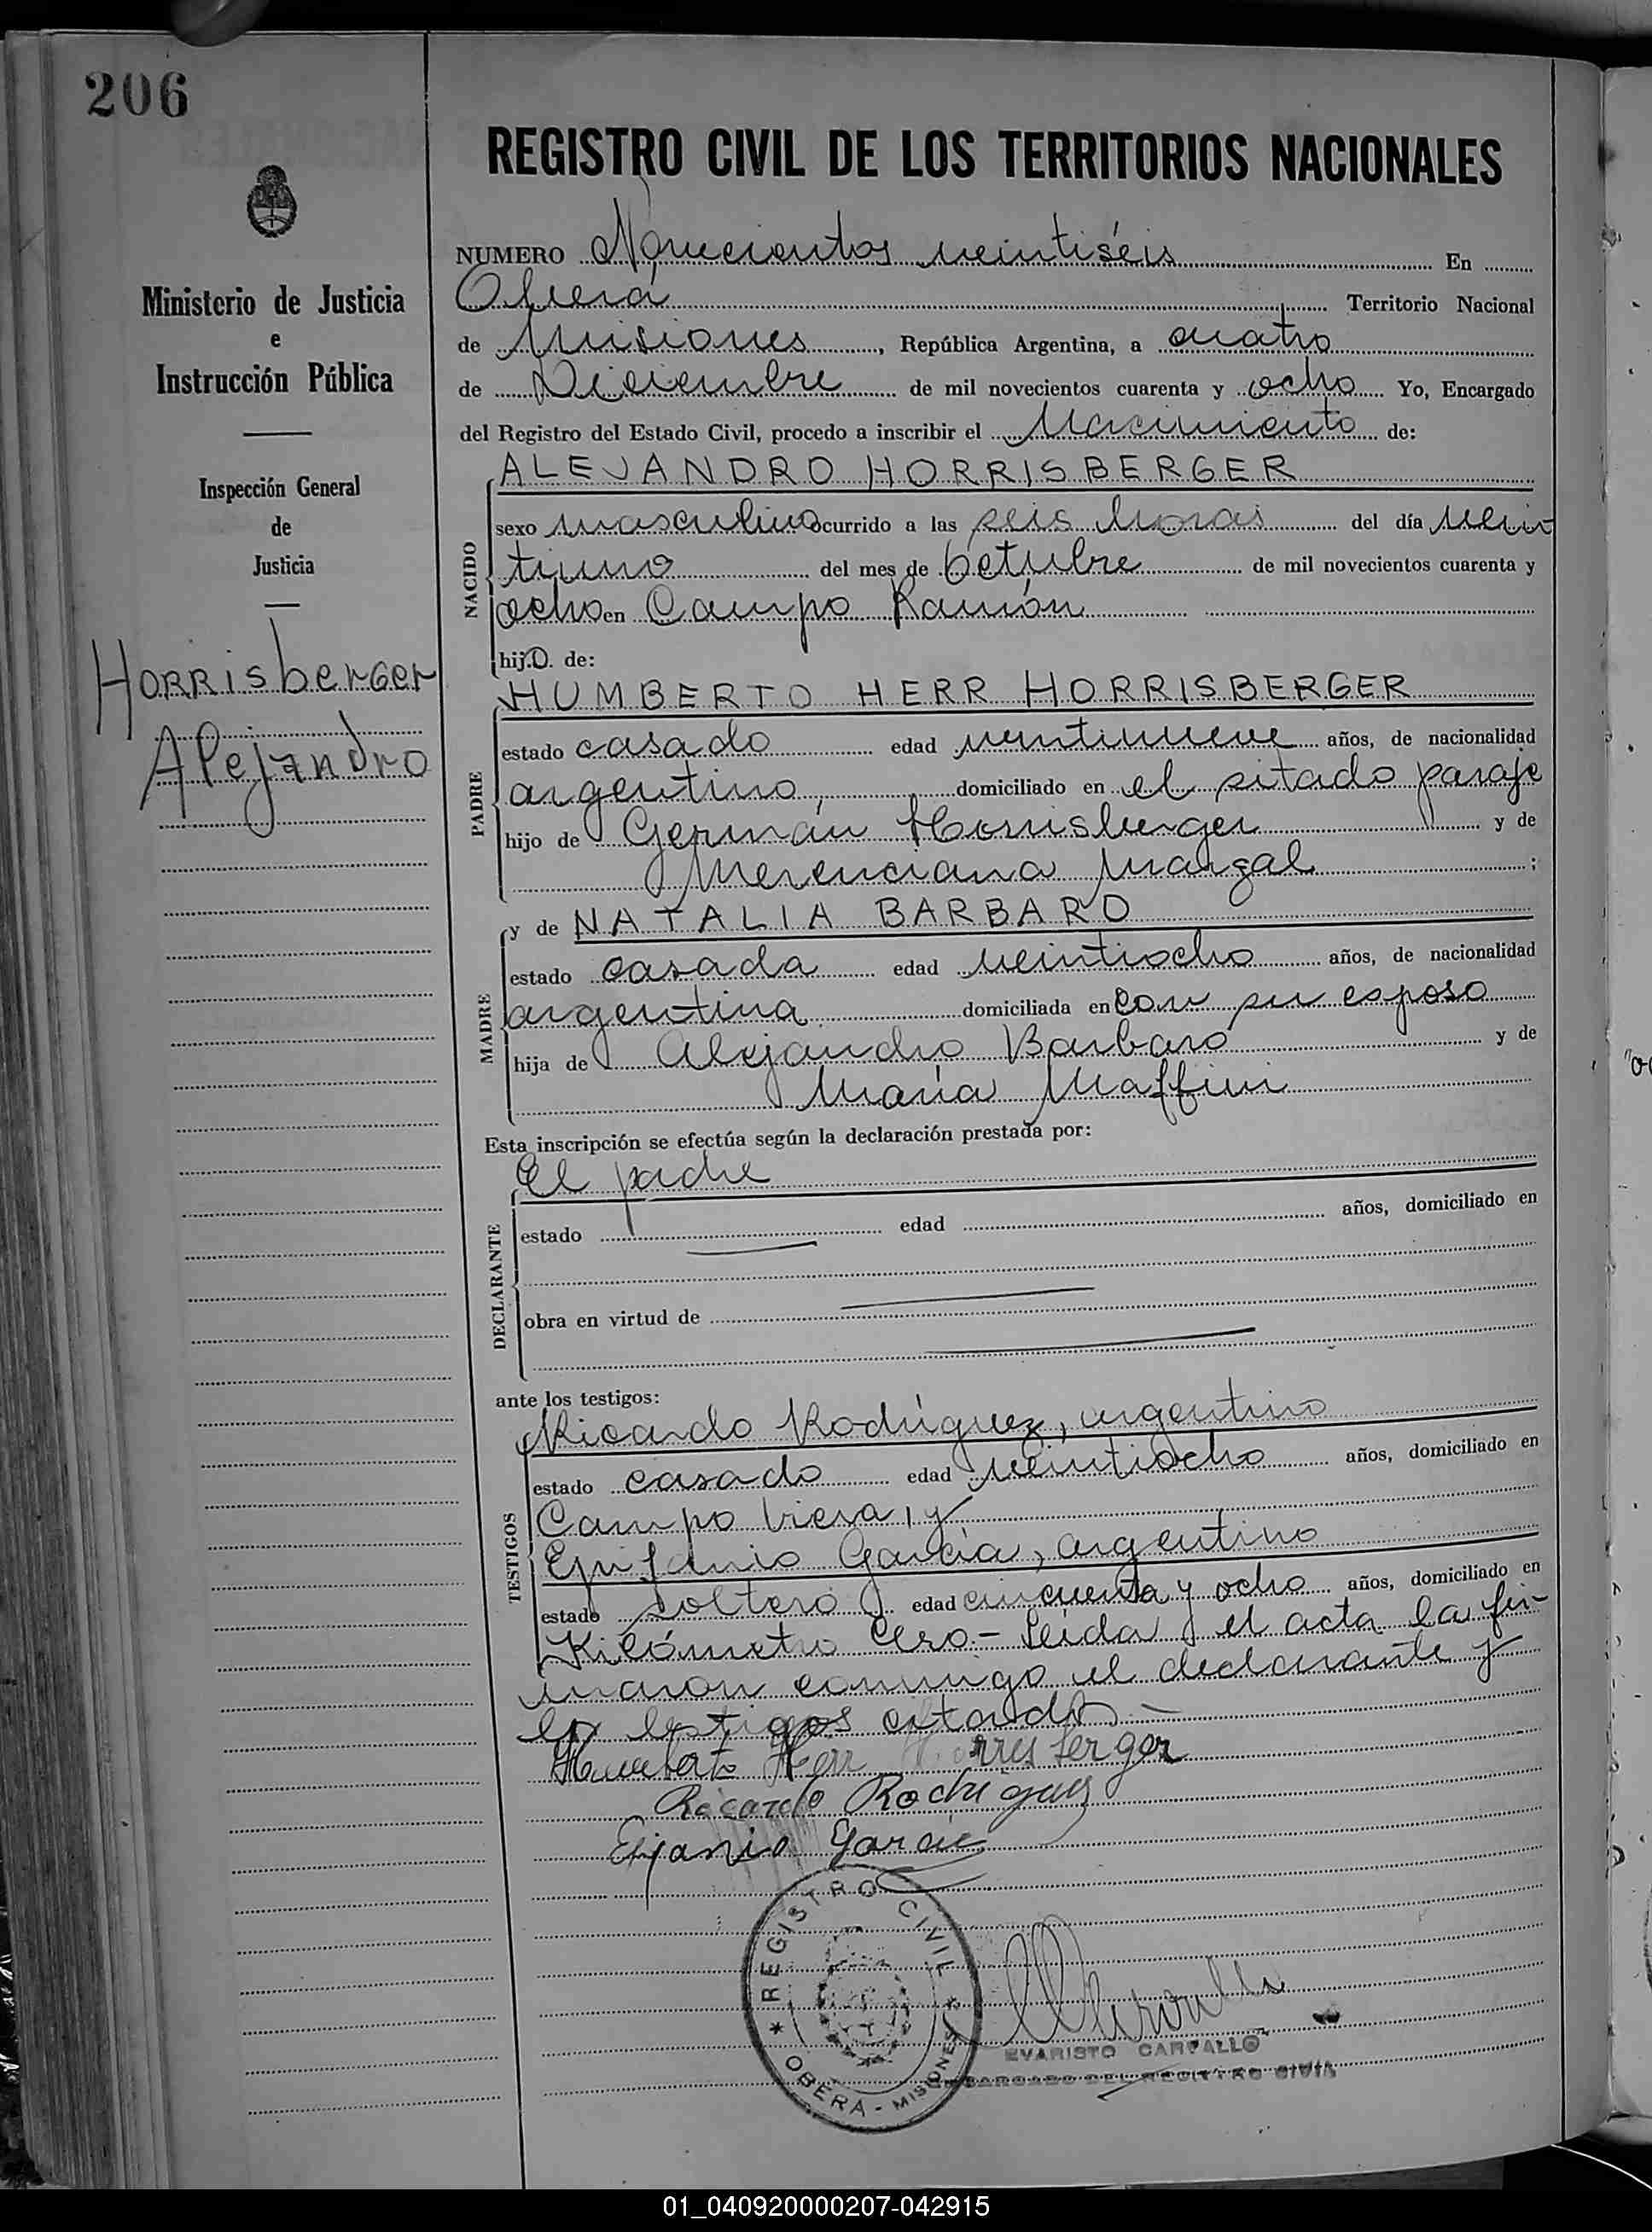 206
REGISTRO CIVIL DE LOS TERRITORIOS NACIONALES
Ministerio de Justicia
e
Instrucción Pública
Inspección General
de
Justicia
Horrisberger
Alejandro
NUMERO Novecientos veintiséis En
Oberá Territorio Nacional
de Misiones, República Argentina, a cuatro
de Diciembre de mil novecientos cuarenta y ocho Yo, Encargado
del Registro del Estado Civil, procedo a inscribir el Nacimiento de:
NACIDO
ALEJANDRO HORRISBERGER
sexo masculino ocurrido a las seis horas del día vein
tiuno del mes de Octubre de mil novecientos cuarenta y
ocho en Campo Ramón
hijo. de:
PADRE
HUMBERTO HERR HORRISBERGER
estado casado edad veintinueve años, de nacionalidad
argentino, domiciliado en el sitado paraje
hijo de Germán Horrisberger y de
Merenciana Margal;
MADRE
y de NATALIA BARBARO
estado casada edad veintiocho años, de nacionalidad
argentina domiciliada en con su esposo
hija de Alejandro Barbaro y de
María Maffini
Esta inscripción se efectúa según la declaración prestada por:
DECLARANTE
El padre
estado edad años, domiciliado en
obra en virtud de
ante los testigos:
TESTIGOS
Ricardo Rodríguez, argentino
estado casado edad veintiocho años, domiciliado en
Campo Viera, y
Epifanio García, argentino
estado soltero edad cincuenta y ocho años, domiciliado en
Kilómetro Cero - Leída el acta la fir-
maron conmigo el declarante y
los testigos citados. -
Humberto Herr Horrisberger
Ricardo Rodriguez
Epifanio Garcia
REGISTRO CIVIL
* OBERA - MISIONES *
EVARISTO CARVALLO
ENCARGADO DEL REGISTRO CIVIL
01_040920000207-042915